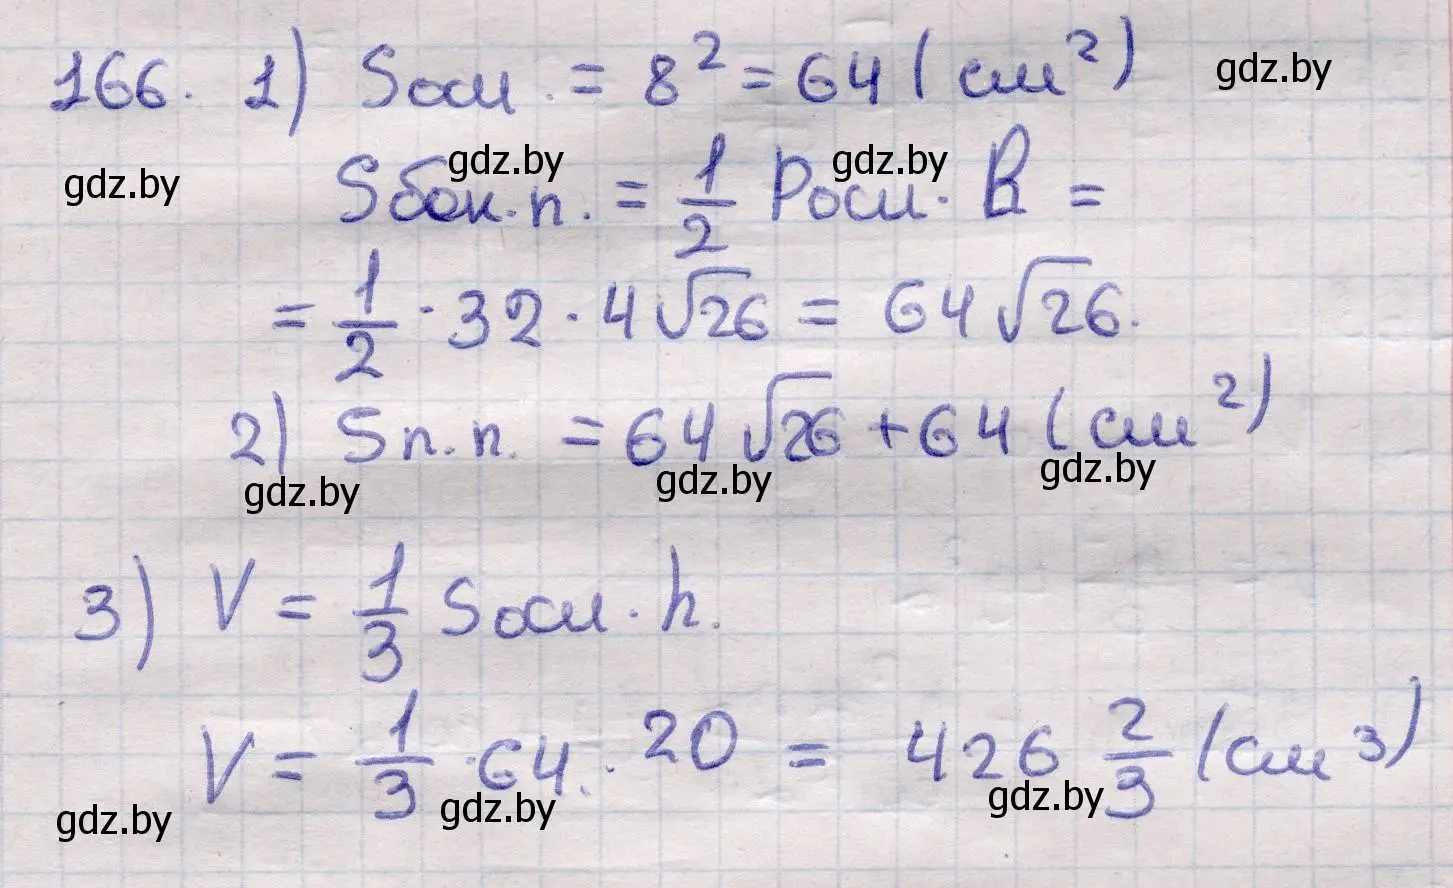 166. 1) Sосн. = 8² = 64 (см²)
gdz.by
gdz.by
Sбок.п. = 1/2 Pосн. · h =
gdz.by
gdz.by
= 1/2 · 32 · 4√26 = 64√26.
2) Sп.п. = 64√26 + 64 (см²)
gdz.by
gdz.by
gdz.by
3) V = 1/3 Sосн · h.
V = 1/3 · 64 · 20 = 426 2/3 (см³)
gdz.by
gdz.by
gdz.by